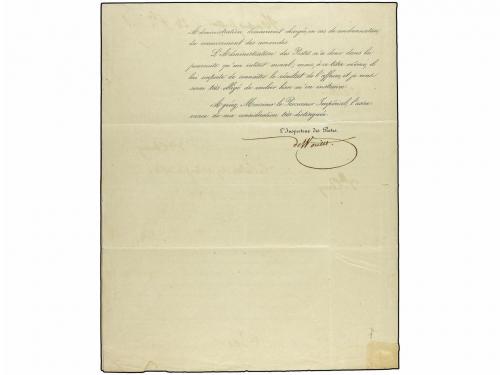 Administration demeurant chargée, en cas de condamnation,
du recouvrement des amendes.
L'Administration des Postes n'a donc dans la
poursuite qu'un intérêt moral; mais, à ce titre même, il
lui importe de connaître le résultat de l'affaire, et je vous
serai très obligé de vouloir bien m'en instruire.
Agréez, Monsieur le Procureur Impérial, l'assu-
rance de ma considération très distinguée.
L'Inspecteur des Postes